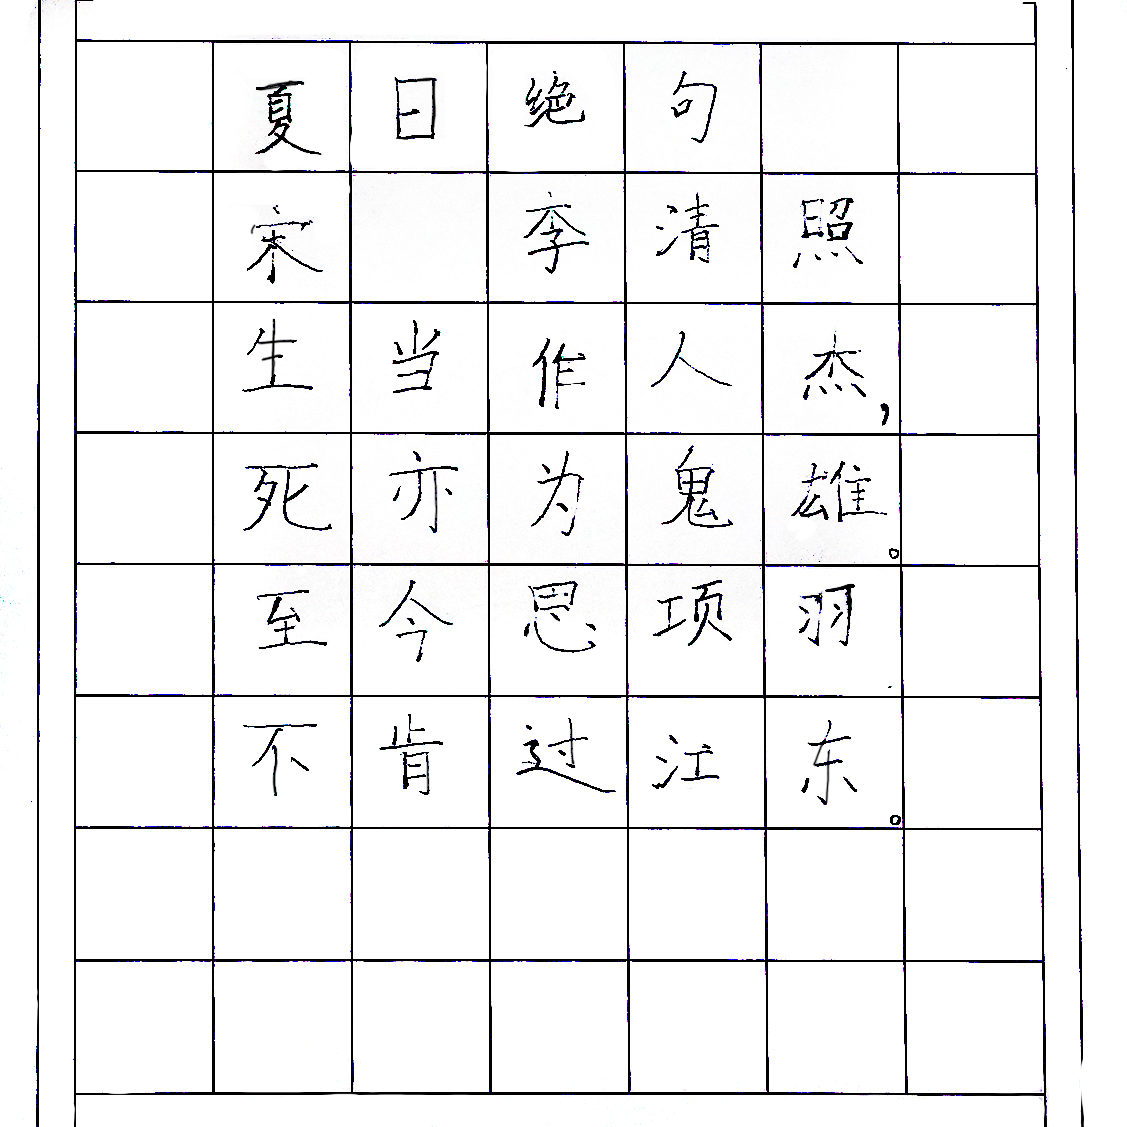 夏日绝句
宋 李清照
生当作人杰，
死亦为鬼雄。
至今思项羽
不肯过江东。